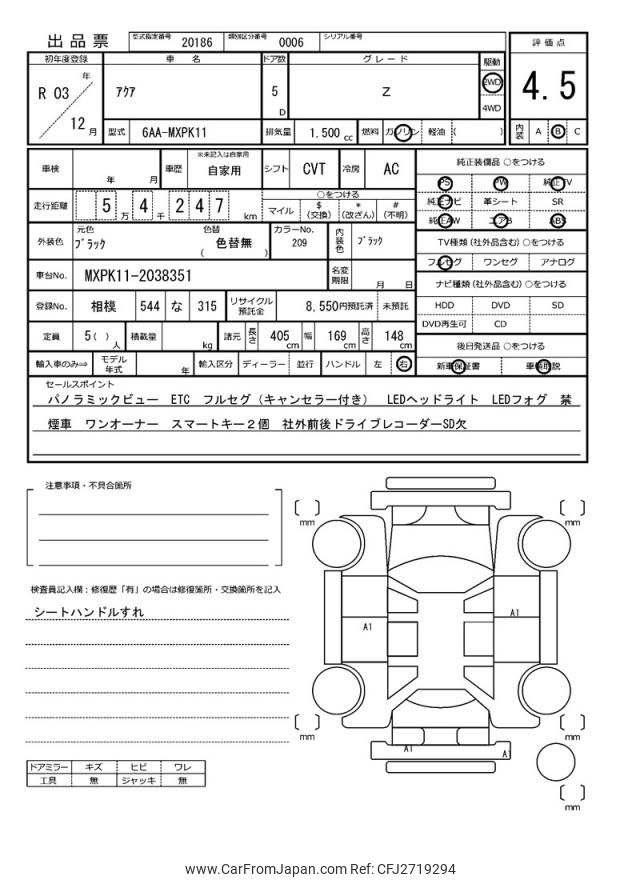 出品票 型式指定番号 20186 類別区分番号 0006 シリアル番号
評価点
4.5
内装 A B C
初年度登録 車名 ドア数 グレード 駆動
R 03 年 12 月
アクア 5 D Z 2WD 4WD
型式 6AA-MXPK11 排気量 1.500 cc 燃料 ガソリン 軽油 ( )
車検 年 月 車歴 ※未記入は自家用 自家用 シフト CVT 冷房 AC
走行距離 5 万 4 千 2 4 7 km ○をつける
マイル $ (交換) * (改ざん) # (不明)
外装色 元色 ブラック 色替 色替無 ( ) カラーNo. 209 内装色 ブラック
車台No. MXPK11-2038351 名変期限 月 日
登録No. 相模 544 な 315 リサイクル預託金 8,550円預託済 未預託
定員 5 ( ) 人 積載量 kg 諸元 長さ 405 cm 幅 169 cm 高さ 148 cm
輸入車のみ⇒ モデル年式 年 輸入区分 ディーラー 並行 ハンドル 左 右
純正装備品 ○をつける
PS PW 純正TV
純正ナビ 革シート SR
純正AW エアB ABS
TV種類 (社外品含む) ○をつける
フルセグ ワンセグ アナログ
ナビ種類 (社外品含む) ○をつける
HDD DVD SD
DVD再生可 CD
後日発送品 ○をつける
新車保証書 車輌取説
セールスポイント
パノラミックビュー ETC フルセグ（キャンセラー付き） LEDヘッドライト LEDフォグ 禁
煙車 ワンオーナー スマートキー２個 社外前後ドライブレコーダーSD欠
注意事項・不具合箇所
検査員記入欄：修復歴「有」の場合は修復箇所・交換箇所を記入
シートハンドルすれ
ドアミラー キズ ヒビ ワレ
工具 無 ジャッキ 無
mm
mm
A1
A1
mm
mm
A1
A1
mm
www.CarFromJapan.com Ref: CFJ2719294